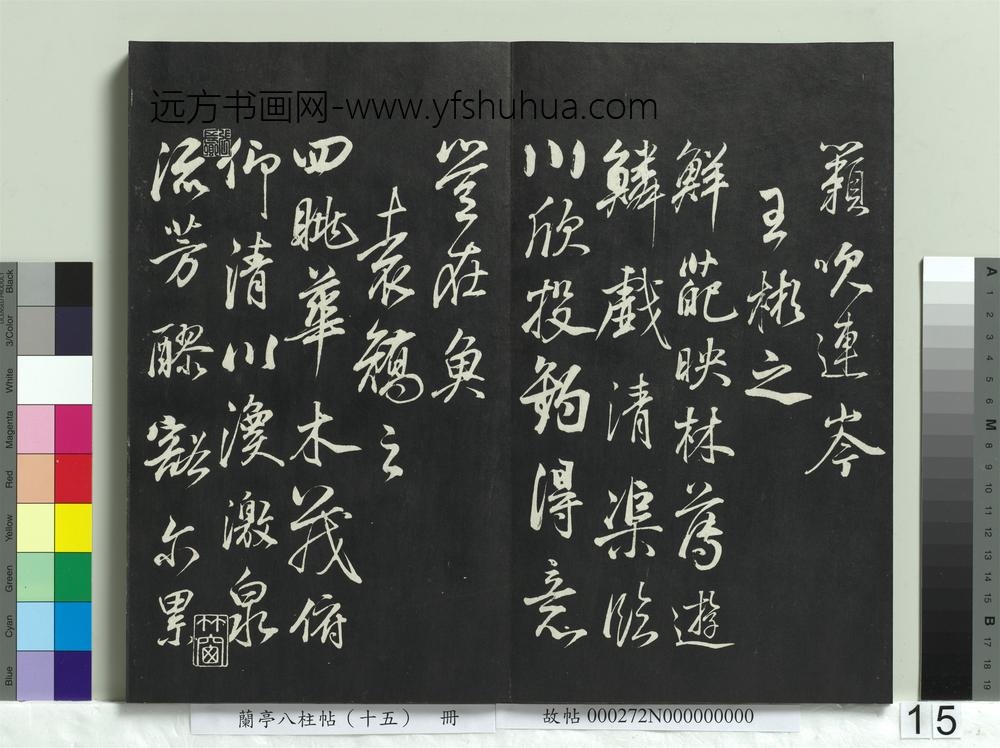 远方书画网-www.yfshuhua.com
籟吹連岑
王彬之
鮮葩映林薄遊
鱗戲清渠臨
川欣投釣得意
豈在魚
袁嶠之
四眺華木茂俯
仰清川渙激泉
流芳醪豁尔累
蘭亭八柱帖（十五） 冊
故帖 000272N000000000
15
Black
3/Color
White
Magenta
Red
Yellow
Green
Cyan
Blue
A
1
2
3
4
5
6
M
8
9
10
11
12
13
14
15
B
17
18
19